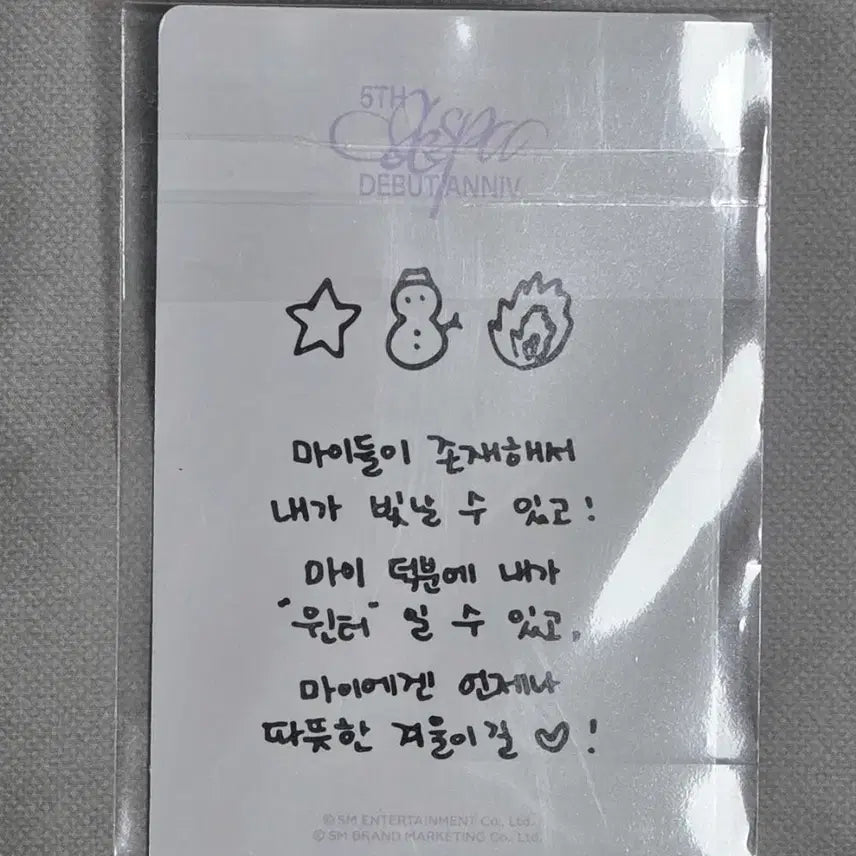 5TH
aespa
DEBUT ANNIV.
마이들이 존재해서
내가 빛날 수 있고!
마이 덕분에 내가
"윈터" 일 수 있고,
마이에겐 언제나
따뜻한 겨울이길 ♡!
© SM ENTERTAINMENT Co., Ltd.
© SM BRAND MARKETING Co., Ltd.